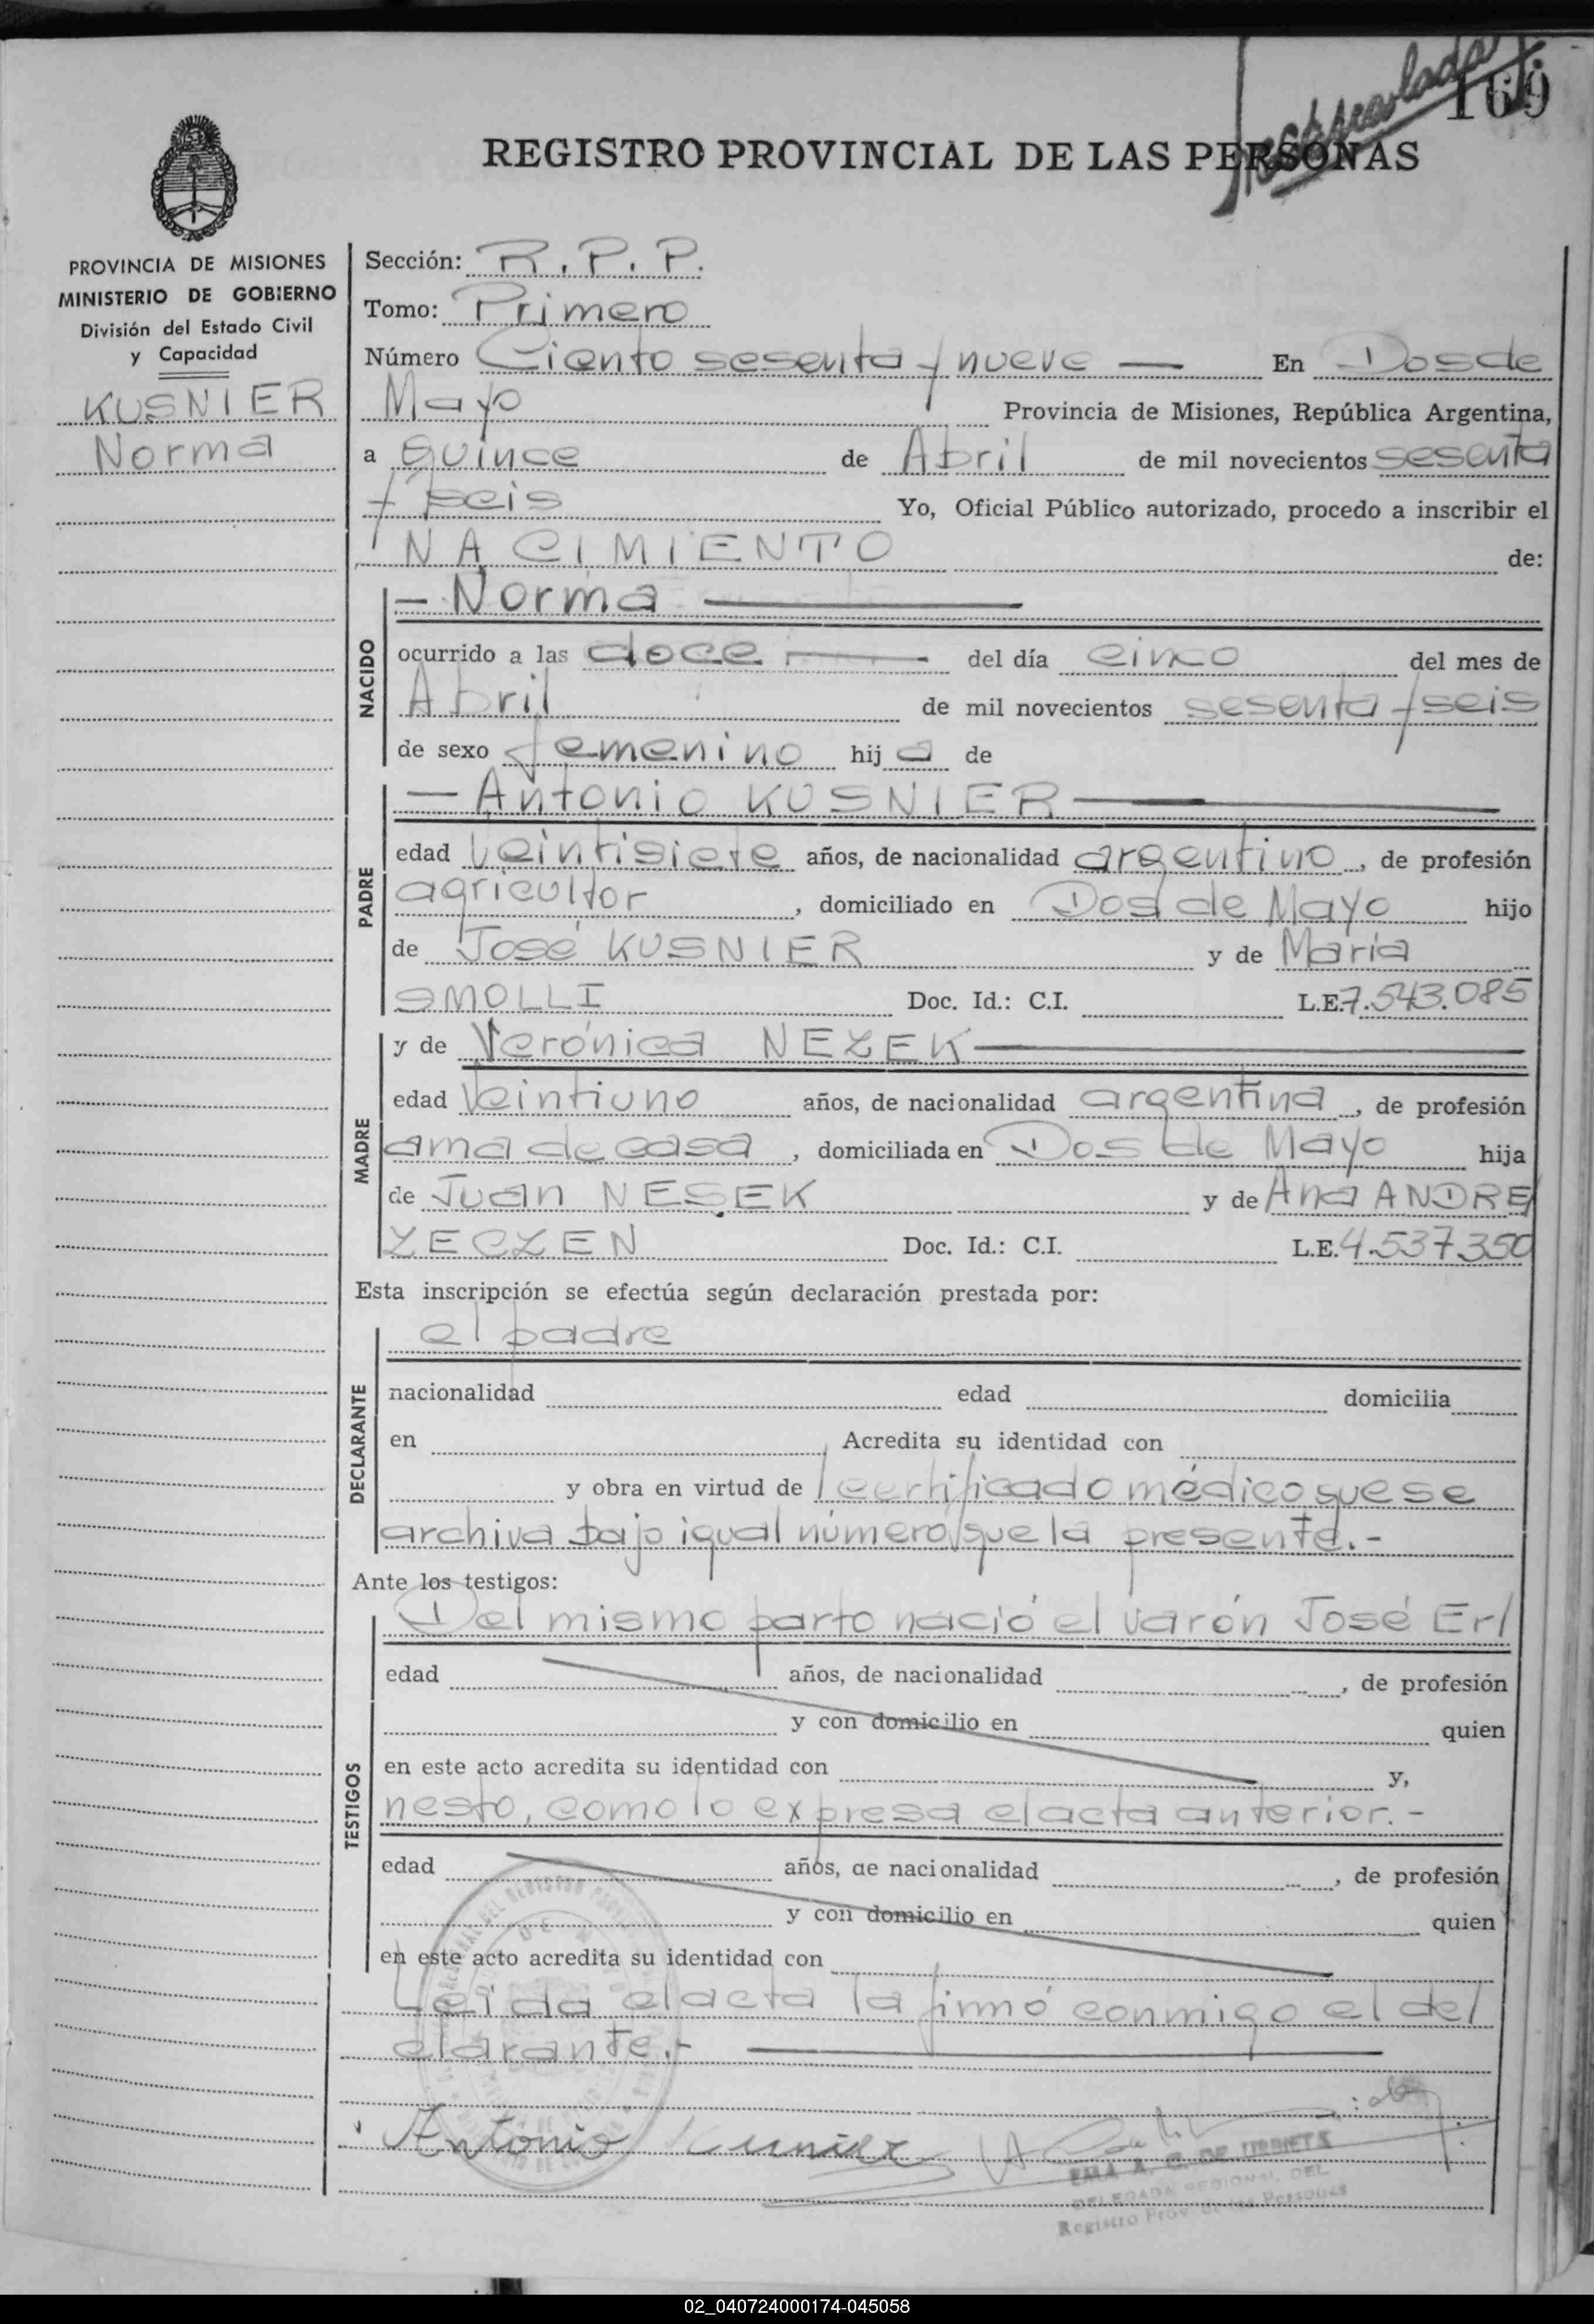 169
REGISTRO PROVINCIAL DE LAS PERSONAS
PROVINCIA DE MISIONES
MINISTERIO DE GOBIERNO
División del Estado Civil
y Capacidad
KUSNIER
Norma
Sección: R.P.P.
Tomo: Primero
Número Ciento sesenta y nueve — En Dos de
Mayo Provincia de Misiones, República Argentina,
a Quince de Abril de mil novecientos sesenta
y seis Yo, Oficial Público autorizado, procedo a inscribir el
NACIMIENTO de:
NACIDO
- Norma —
ocurrido a las doce — del día cinco del mes de
Abril de mil novecientos sesenta y seis
de sexo femenino hija de
PADRE
— Antonio KUSNIER —
edad veintisiete años, de nacionalidad argentino, de profesión
agricultor, domiciliado en Dos de Mayo hijo
de José KUSNIER y de María
SMOLLI Doc. Id.: C.I. L.E. 7.543.085
MADRE
y de Verónica NEZEK —
edad veintiuno años, de nacionalidad argentina, de profesión
ama de casa, domiciliada en Dos de Mayo hija
de Juan NESEK y de Ana ANDRE/
ZECZEN Doc. Id.: C.I. L.E. 4.537.350
Esta inscripción se efectúa según declaración prestada por:
DECLARANTE
el padre
nacionalidad edad domicilia
en Acredita su identidad con
y obra en virtud de / certificado médico que se
archiva bajo igual número que la presente.-
Ante los testigos:
TESTIGOS
Del mismo parto nació el varón José Er/
edad años, de nacionalidad , de profesión
y con domicilio en quien
en este acto acredita su identidad con y,
nesto, como lo expresa el acta anterior.-
edad años, de nacionalidad , de profesión
y con domicilio en quien
en este acto acredita su identidad con
Leída el acta la firmó conmigo el de/
clarante.- —
Antonio Kusnier
EMA A. C. DE URRIETA
DELEGADA REGIONAL DEL
Registro Prov. de las Personas
02_040724000174-045058